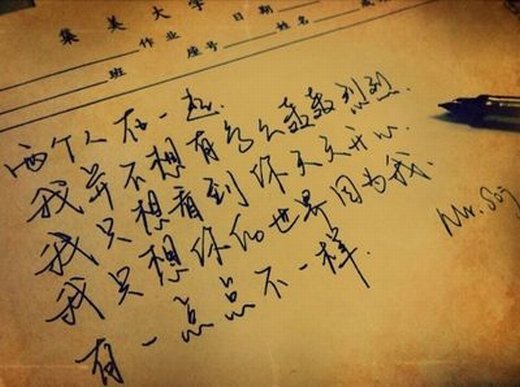 集美大学
作业 日期
班 座号 姓名 成绩
两个人在一起.
我并不想有多么轰轰烈烈.
我只想看到你天天开心.
我只想你的世界因为我.
有一点点不一样.
Mr. Song